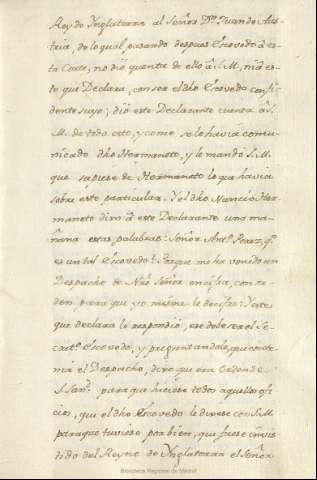 Rey de Ynglaterra al Señor Dn. Juan de Aus-
tria, de lo qual pasando despues Escovedo à es-
ta Corte, no dió quenta de ello á S.M., ni à es-
te que Declara, con ser el dho Escovedo confi-
dente suyo; dió este Declarante cuenta à S.
M. de todo esto, y como se lo havia comu-
nicado dho Hormaneto, y le mandó S.M.
que supiese de Hormaneto lo que havia
sobre este particular. Y el dho Nuncio Hor-
maneto dixo à este Declarante una ma-
ñana estas palabras: Señor Antº. Perez, qn.
es un tal Escovedo? Porque me ha venido un
Despacho de Nrô. Señor en cifra, con or-
den para que yo mismo le decifre: Y este
que declara le respondió, ese debe ser el Se-
cretº. Escovedo, y preguntandole, que conte-
nia el Despacho, dixo que era orden de
S. Sand. para que hiciese todos aquellos ofi-
cios, que el dho Escovedo le dixese con S.M.
para que tuviese por bien, que fuese invis-
tido del Reyno de Ynglaterra el Señor
Biblioteca Regional de Madrid